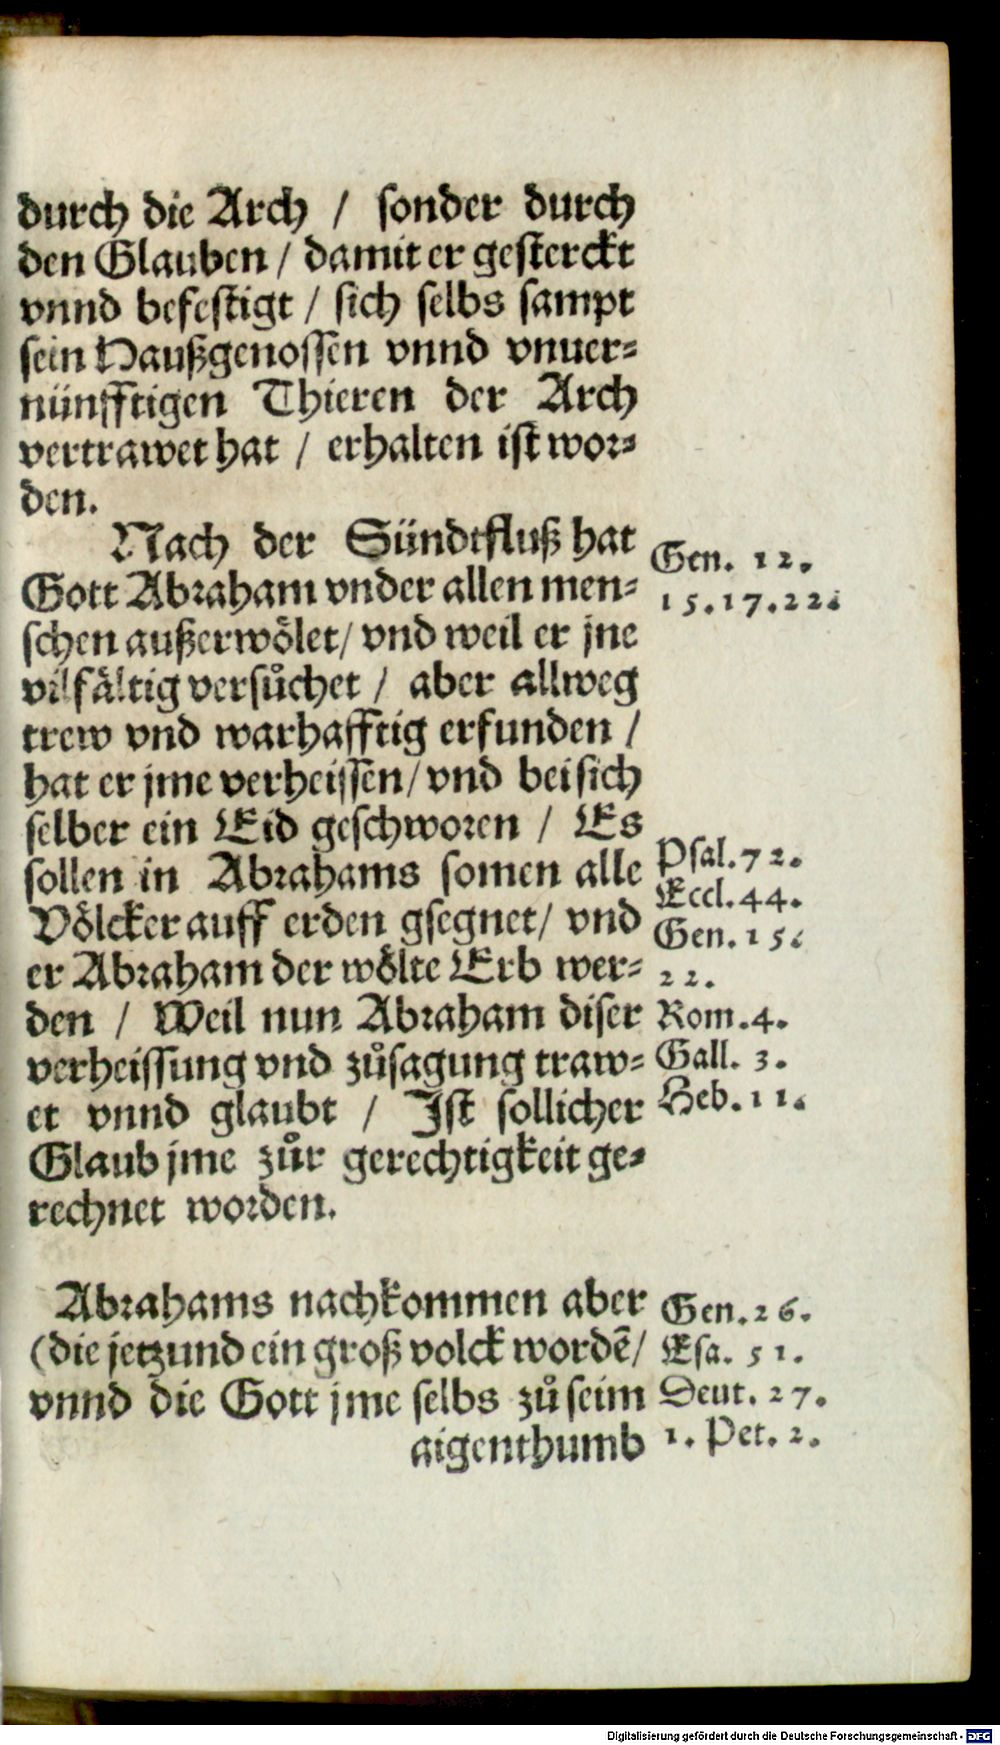 durch die Arch / sonder durch
den Glauben / damit er gesterckt
vnnd befestigt / sich selbs sampt
sein Haußgenossen vnnd vnuer-
nünfftigen Thieren der Arch
vertrawet hat / erhalten ist wor-
den.
Nach der Sündtfluß hat
Gott Abraham vnder allen men-
schen außerwölet / vnd weil er jne
vilfältig versůchet / aber allweg
trew vnd warhafftig erfunden /
hat er jme verheissen / vnd bei sich
selber ein Eid geschworen / Es
sollen in Abrahams somen alle
Völcker auff erden gsegnet / vnd
er Abraham der wölte Erb wer-
den / Weil nun Abraham diser
verheissung vnd zůsagung traw-
et vnnd glaubt / Ist sollicher
Glaub jme zůr gerechtigkeit ge-
rechnet worden.
Gen. 12.
15.17.22.
Psal. 72.
Eccl. 44.
Gen. 15.
22.
Rom. 4.
Gall. 3.
Heb. 11.
Abrahams nachkommen aber
(die jetzund ein groß volck wordē /
vnnd die Gott jme selbs zů seim
aigenthumb
Gen. 26.
Esa. 51.
Deut. 27.
1. Pet. 2.
Digitalisierung gefördert durch die Deutsche Forschungsgemeinschaft - DFG